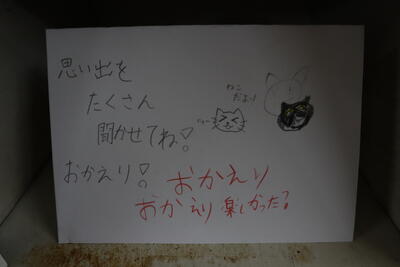 思い出を
たくさん
聞かせてね!
おかえり!
ねこ
だよ!
おかえり
おかえり 楽しかった?